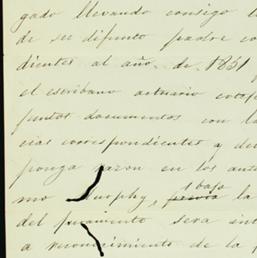 gado llevando consigo l
de su difunto padre co
dientes al año de 1851
el escribano actuario cotej
juntos documentos con la
cias correspondientes y de
ponga razon en los ante
mo Murphy, bajo la
del juramento sera int
a reconocimiento de la